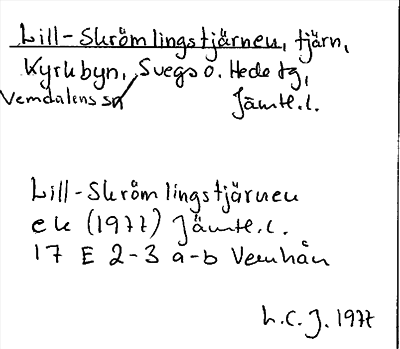 Lill-Skrömlingstjärnen, tjärn,
Kyrkbyn, Svegs o. Hede tg,
Vemdalens sn Jämtl.l.
Lill-Skrömlingstjärnen
ek (1977) Jämtl.l.
17 E 2-3 a-b Vemhån
L.C.J. 1977